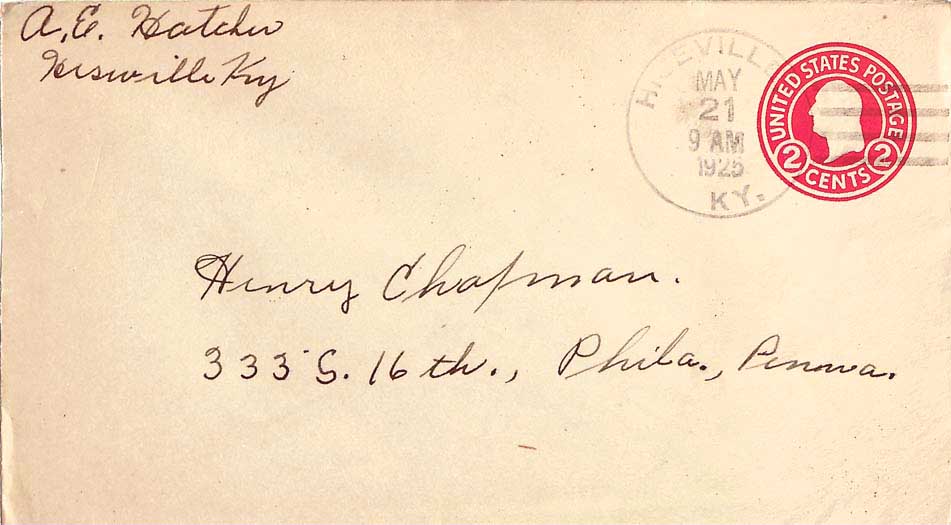 A. E. Hatcher
Hisville Ky
HISEVILLE
MAY
21
9 AM
1925
KY.
UNITED STATES POSTAGE
2 CENTS 2
Henry Chapman.
333 S. 16 th., Phila., Penna.